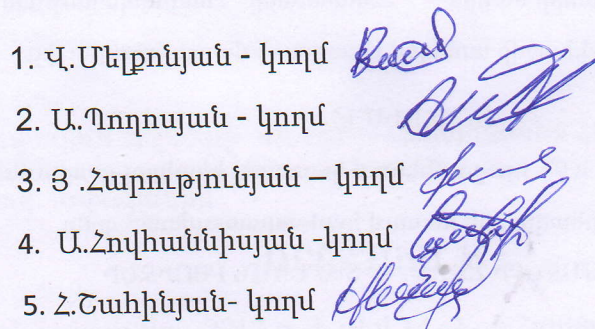 1. Վ.Մելքոնյան - կողմ
2. Ա.Պողոսյան - կողմ
3. Յ .Հարությունյան – կողմ
4. Ա.Հովհաննիսյան -կողմ
5. Հ.Շահինյան- կողմ